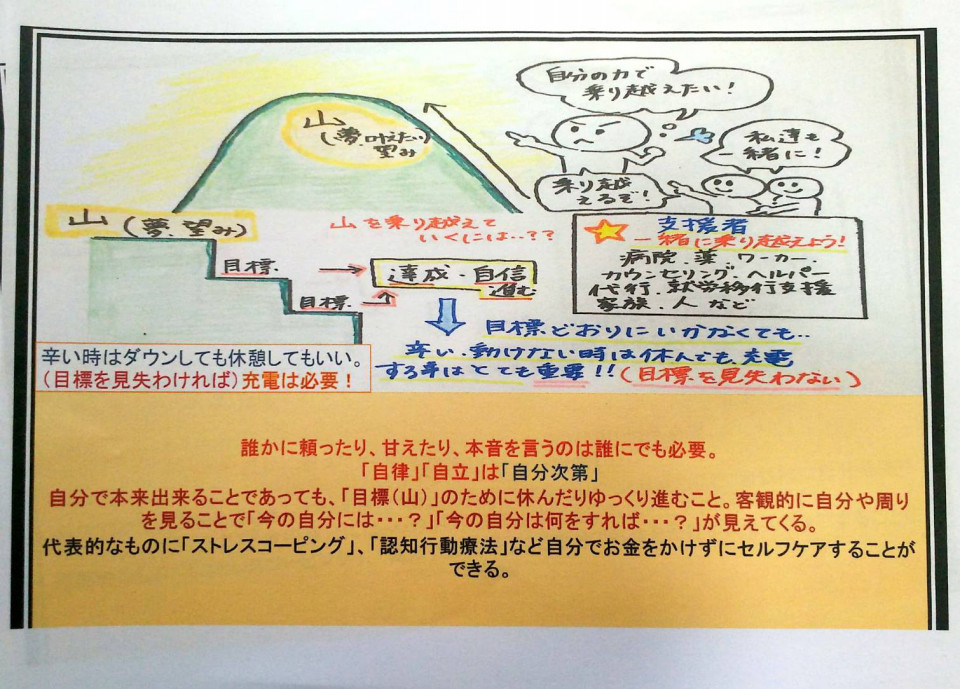 自分の力で
乗り越えたい!
山
(夢.叶えたい
望み)
私達も
一緒に!
乗り越
えるぞ!
山(夢.望み)
山を乗り越えて
いくには‥??
支援者
一緒に乗り越えよう!
病院.薬.ワーカー.
カウンセリング.ヘルパー
代行.就労移行支援
家族.人など
目標.
達成・自信
進む
目標
目標どおりにいかなくても‥
辛い.動けない時は休んでも充電
する事はとても重要!!(目標を見失わない)
辛い時はダウンしても休憩してもいい。
(目標を見失わければ)充電は必要!
誰かに頼ったり、甘えたり、本音を言うのは誰にでも必要。
「自律」「自立」は「自分次第」
自分で本来出来ることであっても、「目標(山)」のために休んだりゆっくり進むこと。客観的に自分や周り
を見ることで「今の自分には・・・?」「今の自分は何をすれば・・・?」が見えてくる。
代表的なものに「ストレスコーピング」、「認知行動療法」など自分でお金をかけずにセルフケアすることが
できる。